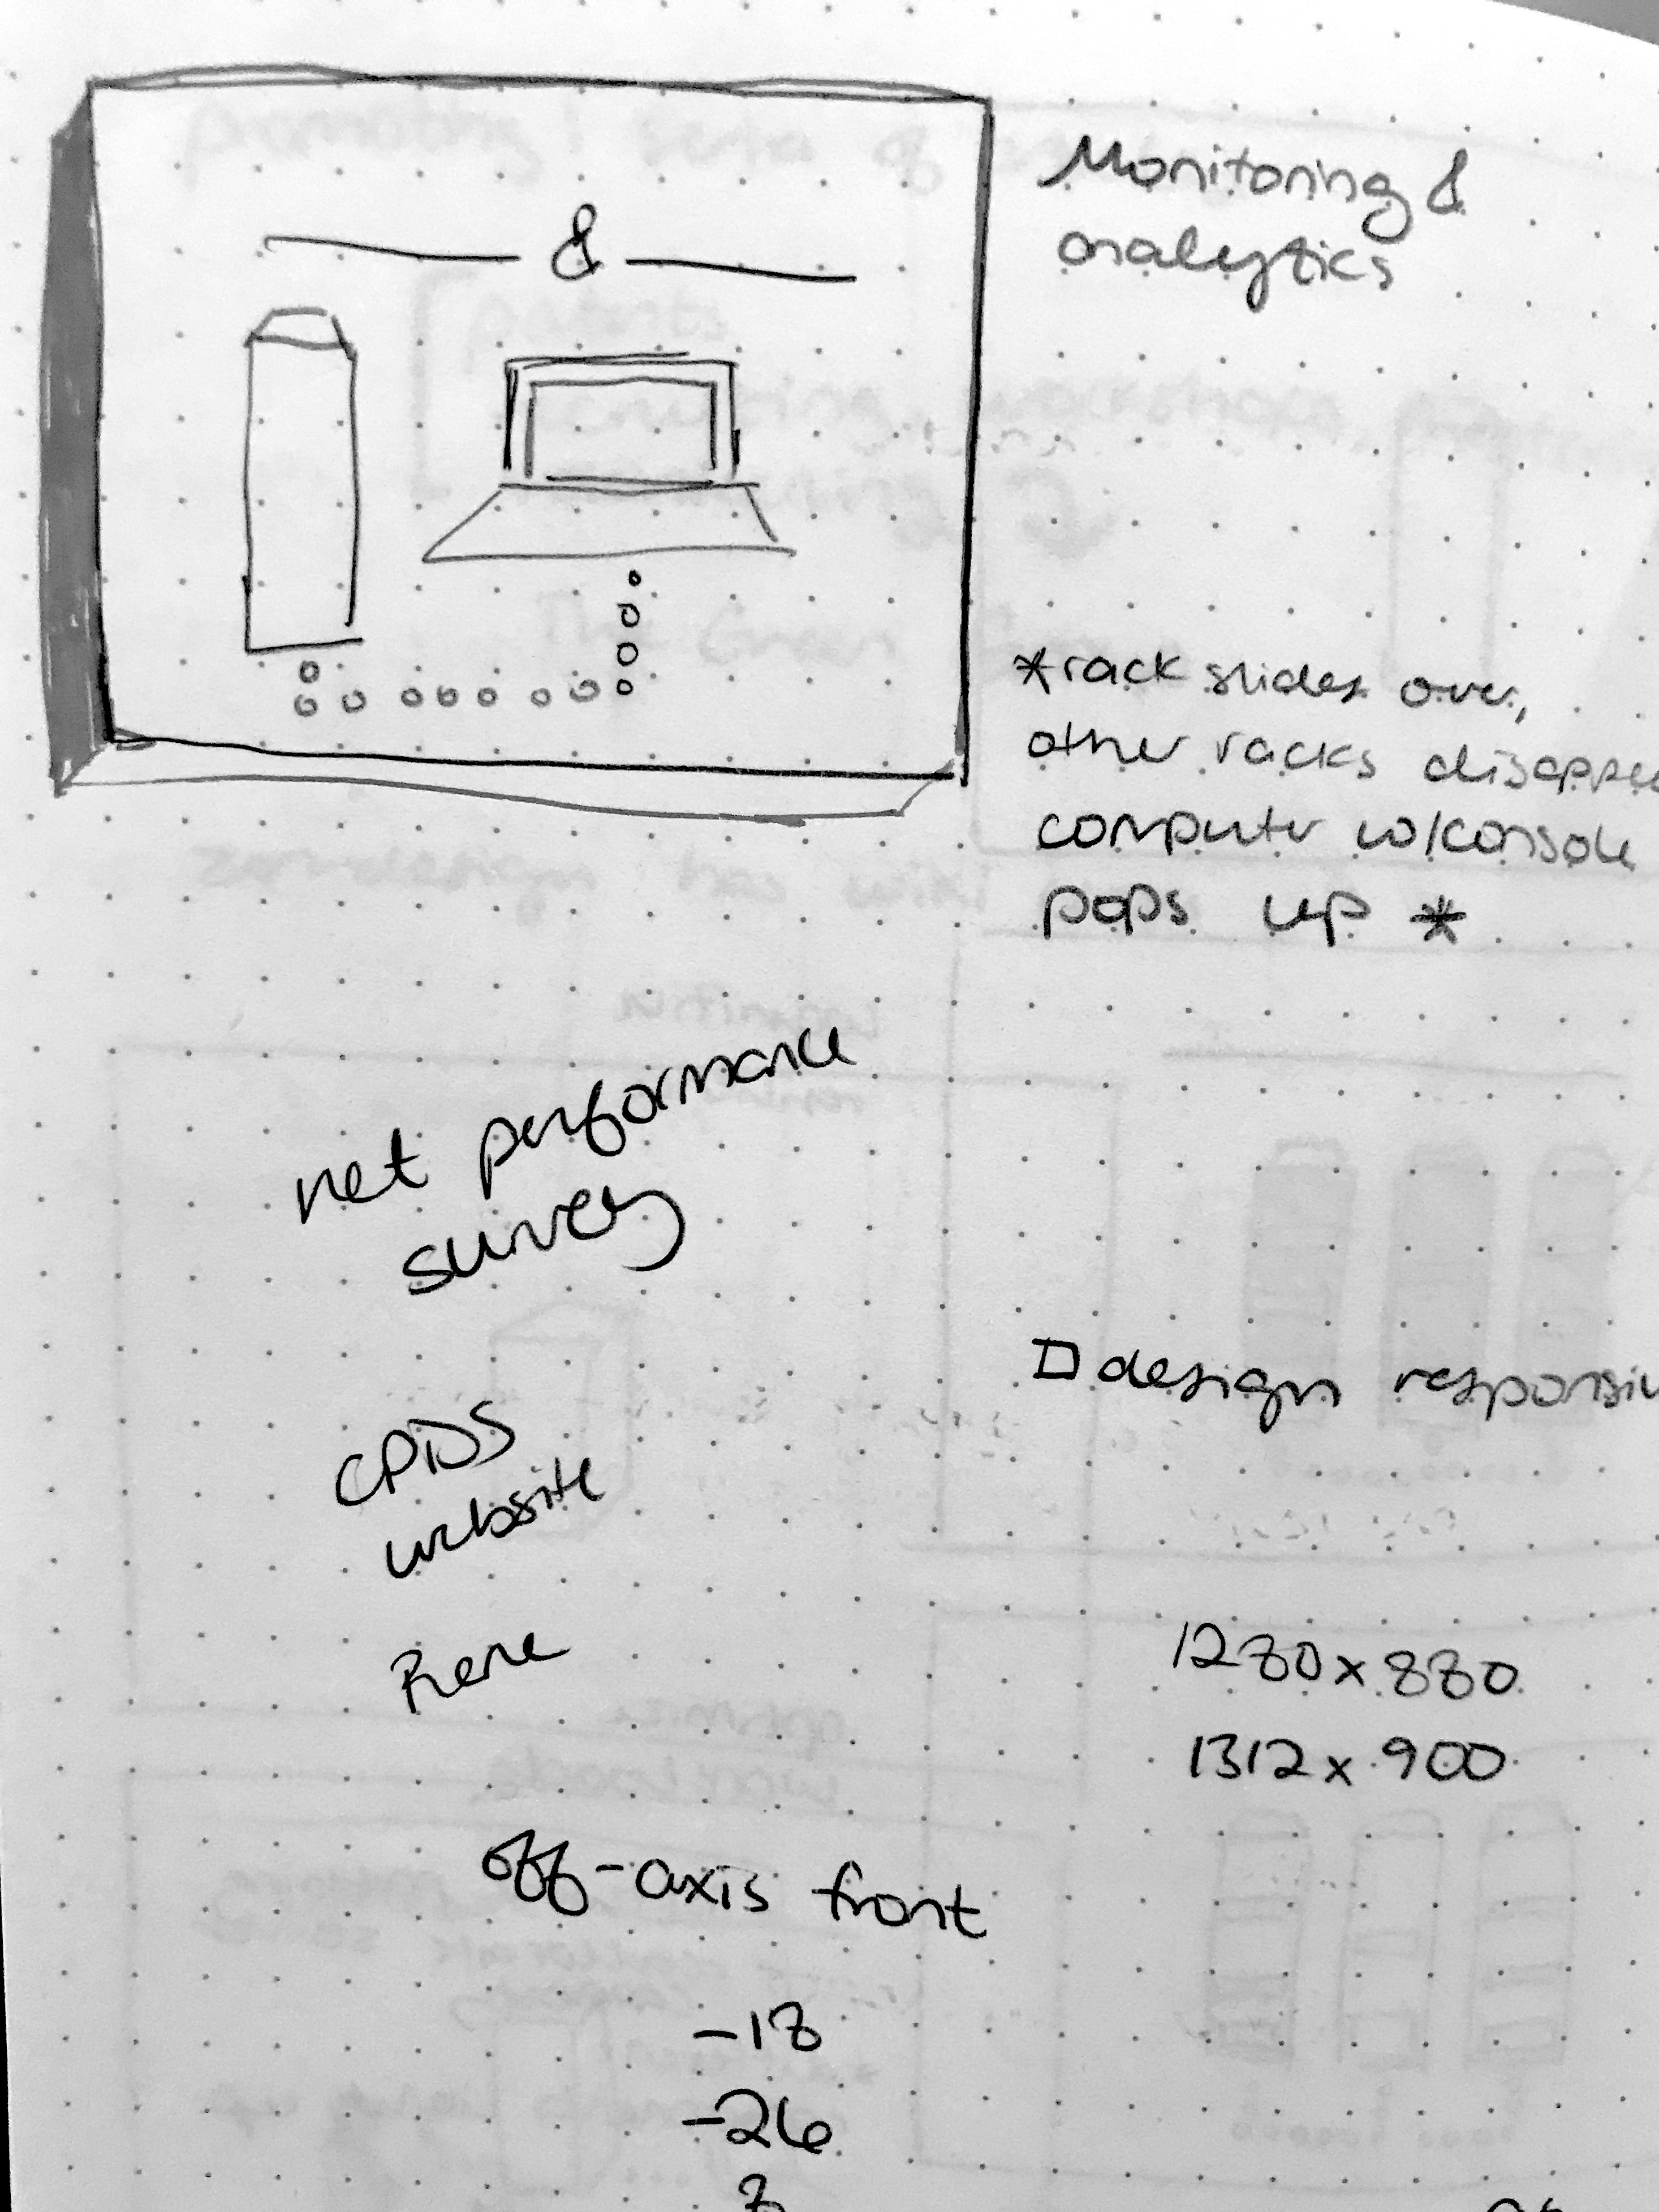 Monitoring &
analytics
&
*rack slides over,
other racks disappe
computer w/console
pops up *
net performance
survey
design responsiv
CPDS
website
Rene
1280x880
1312x900
off-axis front
-18
-26
8